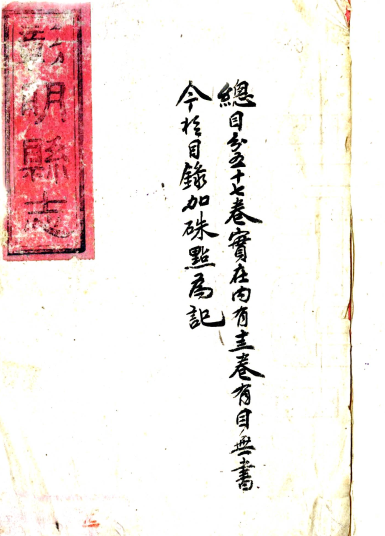 總目分五十七卷實在內有十三卷有目無書
今於目錄加硃點爲記
明縣志